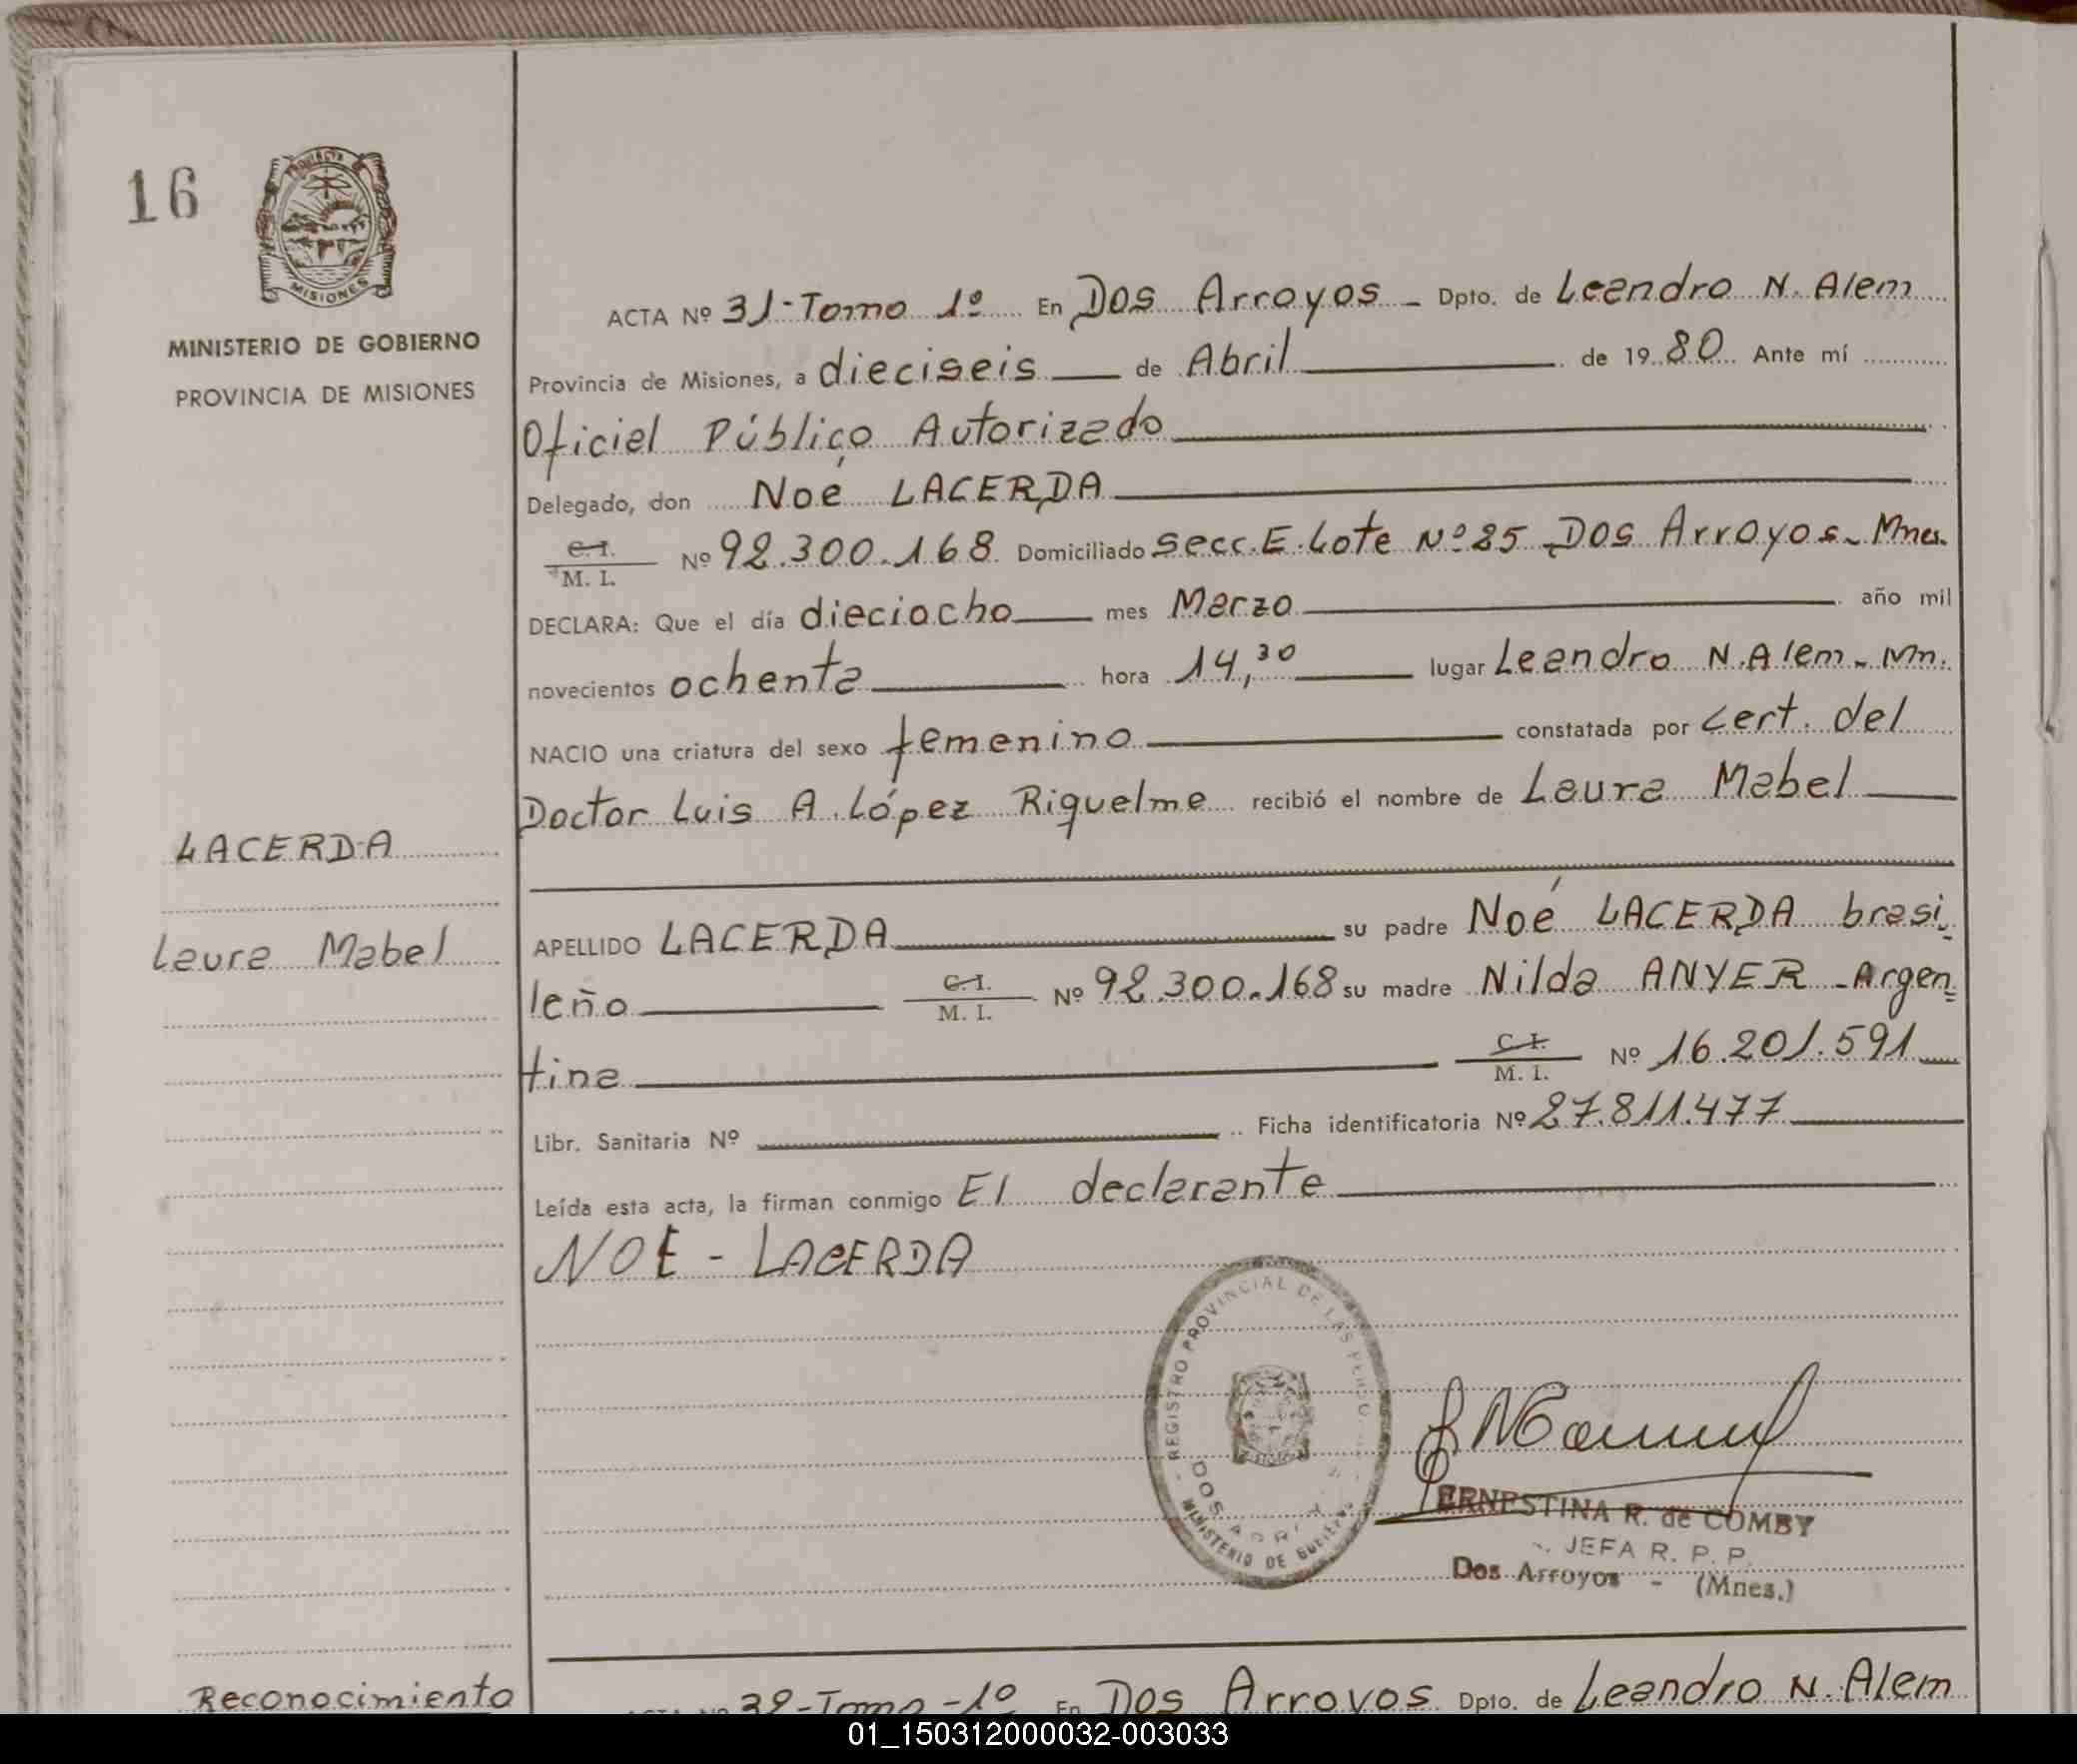 16
MISIONES
MINISTERIO DE GOBIERNO
PROVINCIA DE MISIONES
LACERDA
Laura Mabel
ACTA Nº 31-Tomo 1º En Dos Arroyos - Dpto. de Leandro N. Alem
Provincia de Misiones, a dieciseis de Abril de 1980 Ante mí
Oficial Público Autorizado
Delegado, don Noé LACERDA
C.I. M. I. Nº 92.300.168 Domiciliado Secc. E. Lote Nº 25 Dos Arroyos- Mnes.
DECLARA: Que el día dieciocho mes Marzo año mil
novecientos ochenta hora 14,30 lugar Leandro N. Alem - Mn.
NACIO una criatura del sexo femenino constatada por Cert. del
Doctor Luis A. López Riquelme recibió el nombre de Laura Mabel
APELLIDO LACERDA su padre Noé LACERDA brasi-
leño C.I. M. I. Nº 92.300.168 su madre Nilda ANYER - Argen=
tina C.I. M. I. Nº 16.201.591
Libr. Sanitaria Nº Ficha identificatoria Nº 27.811.477
Leída esta acta, la firman conmigo El declarante
NOE - LACERDA
REGISTRO PROVINCIAL DE LAS
DOS
MINISTERIO DE
ERNESTINA R. de COMBY
JEFA R. P. P.
Dos Arroyos - (Mnes.)
Reconocimiento
ACTA Nº 32-Tomo-1º En Dos Arroyos Dpto. de Leandro N. Alem
01_150312000032-003033